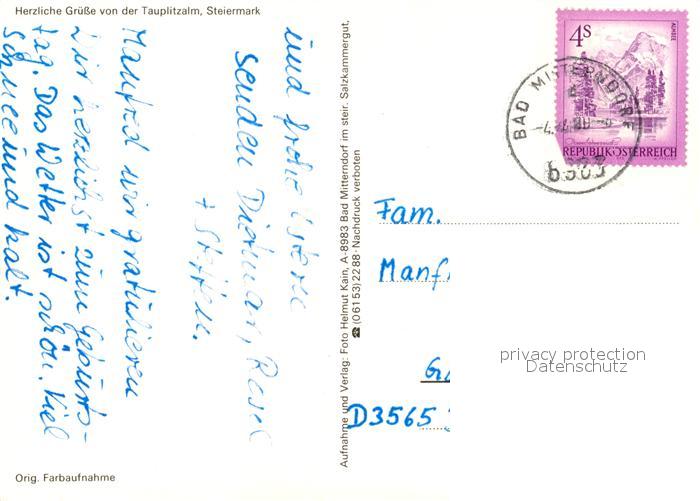 Herzliche Grüße von der Tauplitzalm, Steiermark
und frohe Ostern
senden Dietmar, Resel
+ Steffen.
Manfred wir gratulieren
dir herzlichst zum Geburts-
tag. Das Wetter ist schön. Viel
Schnee und kalt.
Orig. Farbaufnahme
Aufnahme und Verlag: Foto Helmut Kain, A-8983 Bad Mitterndorf im steir. Salzkammergut,
☎ (06153) 2288 · Nachdruck verboten
4S
ALMSEE
REPUBLIK ÖSTERREICH
BAD MITTERNDORF
Fam.
Manf
D3565
privacy protection
Datenschutz